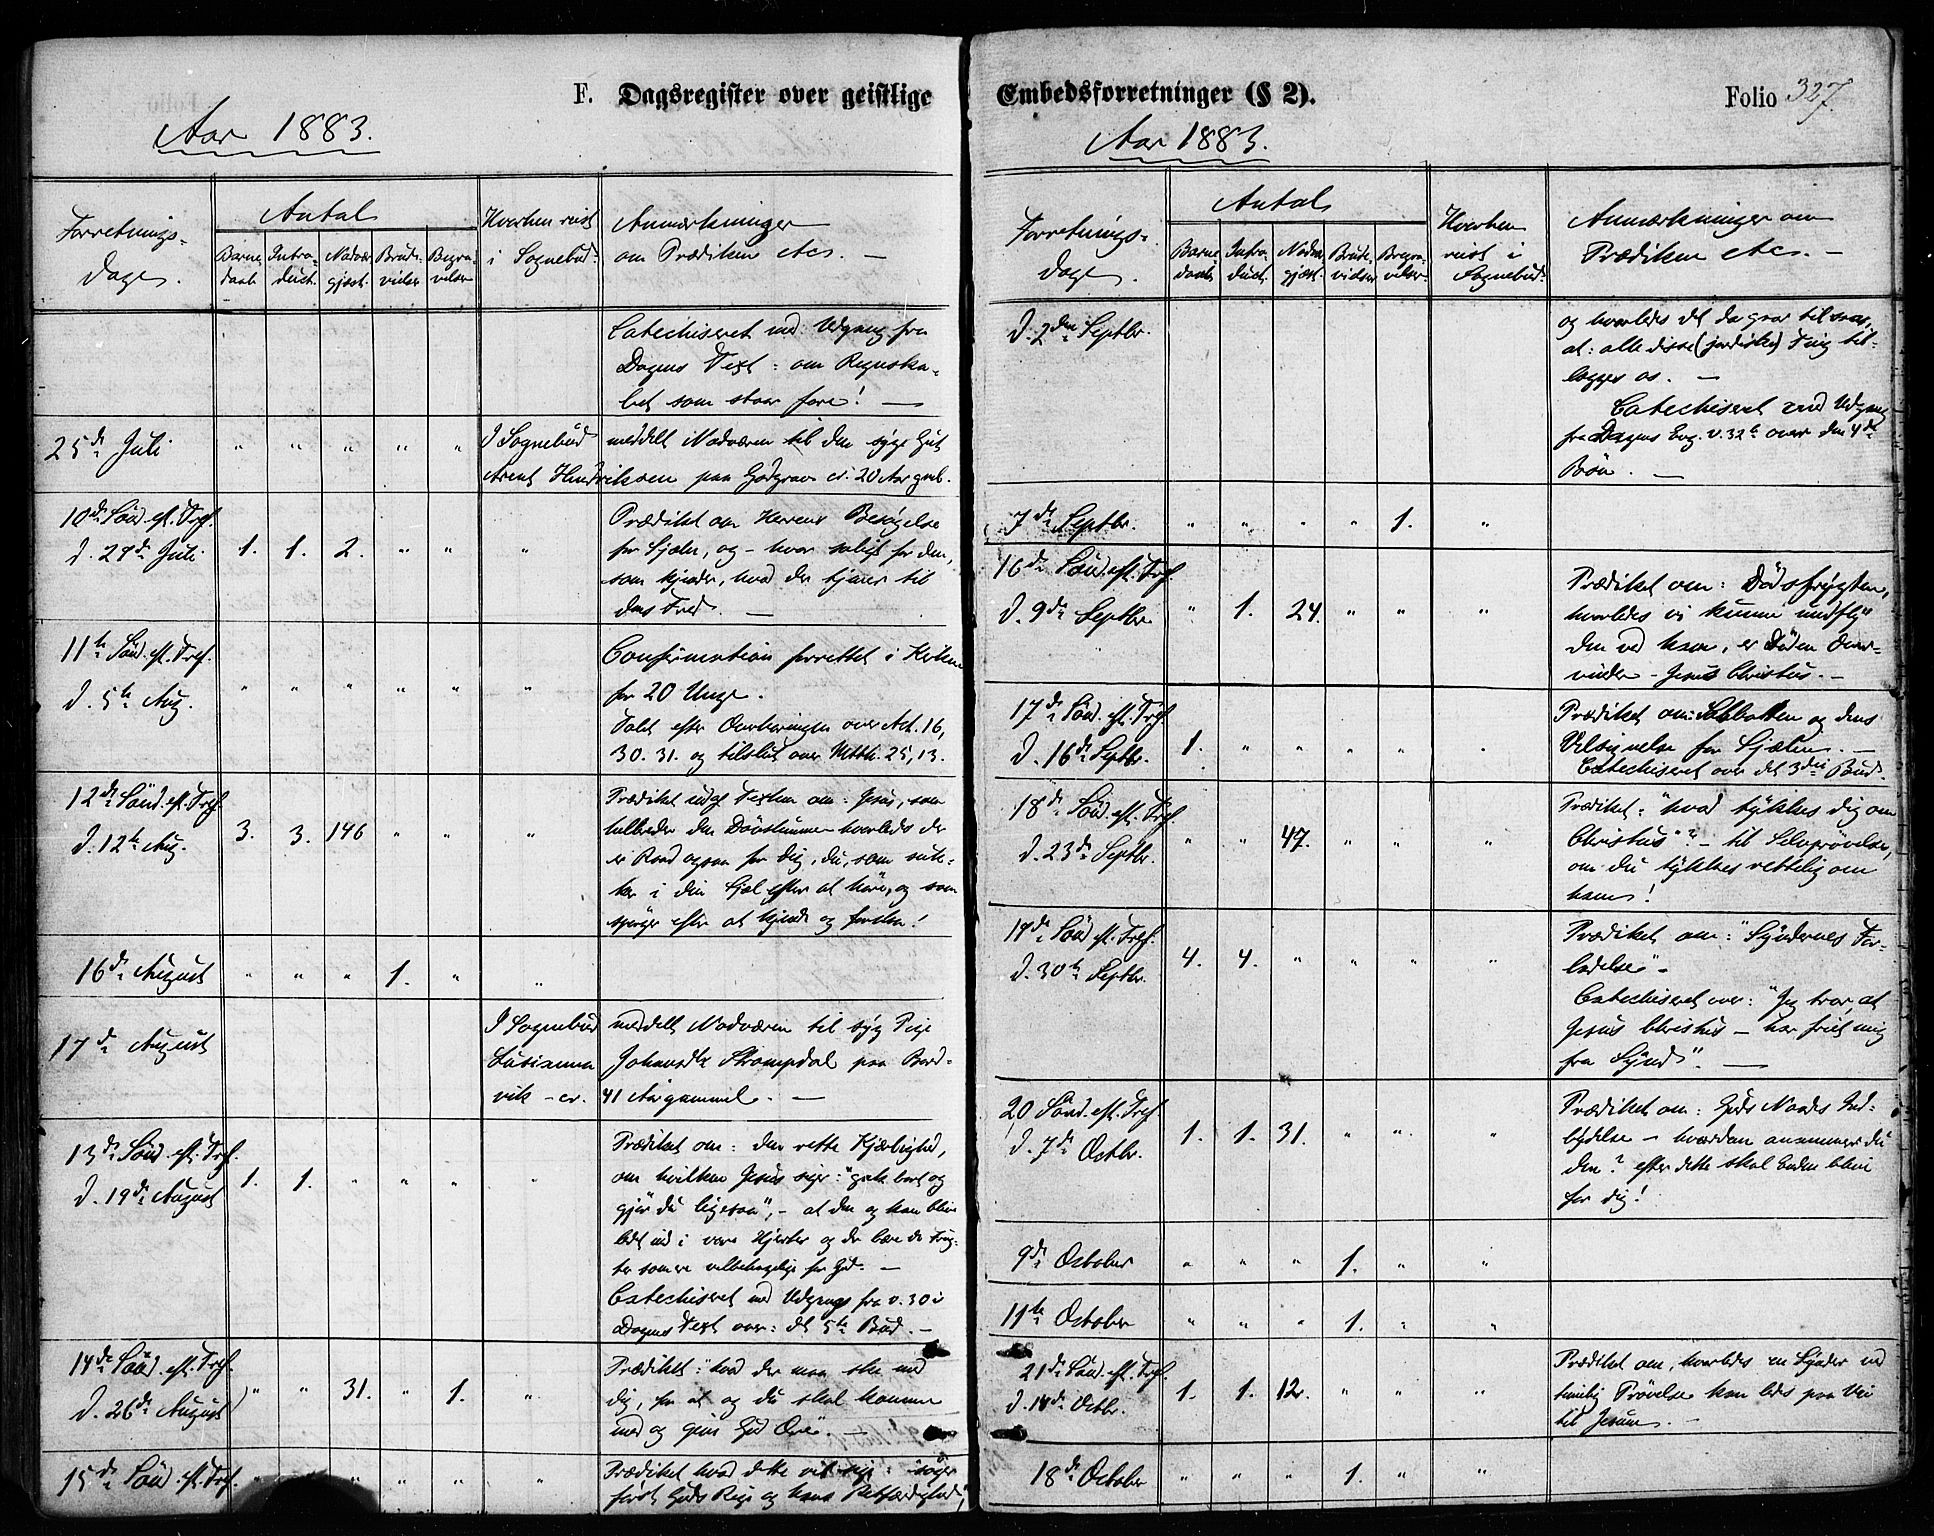 F. Dagsregister over geistlige
Aar 1883.
Forretnings-
dage.
Antal
Barne
daab
Intro-
duct.
Nadvær
gjæst.
Brude-
vielser
Begra-
velser
Hvorhen reist
i Sognebud.
Anmærkninger
om Prædiken etc. —
Catechiseret med Udgang fra
Dagens Text: om Regnska-
bet som staar fore! —
25de Juli " " " " " I Sognebud meddelt Nadværen til den syge Gut
Arent Hendriksen paa er. 20 Aar gml.
10de Sönd. eft. Tref.
d. 29de Juli 1. 1. 2. " " "
Prædiket om Herrens Besøgelse
for Sjælen, og - hvor saligt for den,
som kjender, hvad der tjener til
dens Fred —
11te Sönd. eft. Tref.
d. 5te Aug. " " " " " "
Confirmation forrettet i Kirken
for 20 Unge.
Talet efter Overhøringen over Act. 16,
30. 31. og tilslut over Matth. 25, 13.
12te Sönd. eft. Tref.
d. 12te Aug. 3. 3. 146 " " "
Prædiket Texten om: Jesus, som
helbreder den Døvstumme hvorledes der
er Raad ogsaa for dig, du, som suk-
ker i din Sjæl efter at höre, og som
efter at kjende og
16de August " " " 1. " "
17de August I Sognebud meddelt Nadværen til syg Pige
Johansdtr. Strompdal paa Bord-
vik - er. 41 Aar gammel. —
13de Sönd. eft. Tref.
d. 19de August 1. 1. " " " "
Prædiket om: den rette Kjærlighed,
om hvilken Jesus siger: "gak bort og
gjör du ligesaa", - at den og kan blive
ledt ind i vore Hjerter og der bære de Frug-
ter som ere velbehagelige for Gud. —
Catechiseret med Udgang fra v. 30 i
Dagens Text over: det 5te Bud. —
14de Sönd. eft. Tref.
d. 26de August " " 31. " 1. "
Prædiket: "hvad der maa ske med
dig, for at og du skal komme
med og give Gud Ære". —
15de Sönd. eft. Tref. " " " " "
Prædiket hvad dette vil sige: "søger
først Guds Rige og hans Retfærdighed",
Embedsforretninger (§ 2).
Folio 327.
Aar 1883.
Forretnings-
dage.
Antal
Barne
daab
Intro-
duct.
Nadvr
gjæst.
Brude-
vielser
Begra-
velser
Hvorhen
reist i
Sognebud.
Anmærkninger om
Prædiken etc. —
d. 2den Septbr.
og hvorledes det da gaar til
at: alle disse (jordiske) Ting til-
lægges os. —
Catechiseret med Udgang
fra Dagens Evg. v. 32te over den 4de
Bön. —
7de Septbr. " " " " 1. "
16de Sönd. eft. Tref.
d. 9de Septbr. " 1. 24. " " "
Prædiket om: Dödsfrygten,
hvorledes vi kunne undfly
den ved ham, er Döden Over-
vinder - Jesus Christus. —
17de Sönd. eft. Tref.
d. 16de Septbr. 1. " " " " "
Prædiket om: Sabbatten og dens
Velsignelse for Sjælen. —
Catechiseret over det 3die Bud.
18de Sönd. eft. Tref.
d. 23de Septbr. " " 47. " " "
Prædiket: "hvad tykkes dig om
Christus"? - til Selvprøvelse,
om du tykkes rettelig om
ham!
19de Sönd. eft. Tref.
d. 30te Septbr. 4. 4. " " " "
Prædiket om: "Syndernes For-
ladelse" -
Catechiseret over: "Jeg tror, at
Jesus Christus - har friet mig
fra Synd". —
20 Sönd. eft. Tref.
d. 7de Octbr. 1. 1. 31. " " "
Prædiket om: Guds Naades Ind-
bydelse - hvordan annammer du
den? efter dette skal Enden blive
for dig!
9de October " " " 1. " "
11te October " " " 1. " "
21de Sönd. eft. Tref.
d. 14de Octbr. 1. 1. 12. " " "
Prædiket om, hvorledes en Synder ved
timelig Prøvelse kan leds paa Vei
til Jesum. —
18de October " " " 1. " "